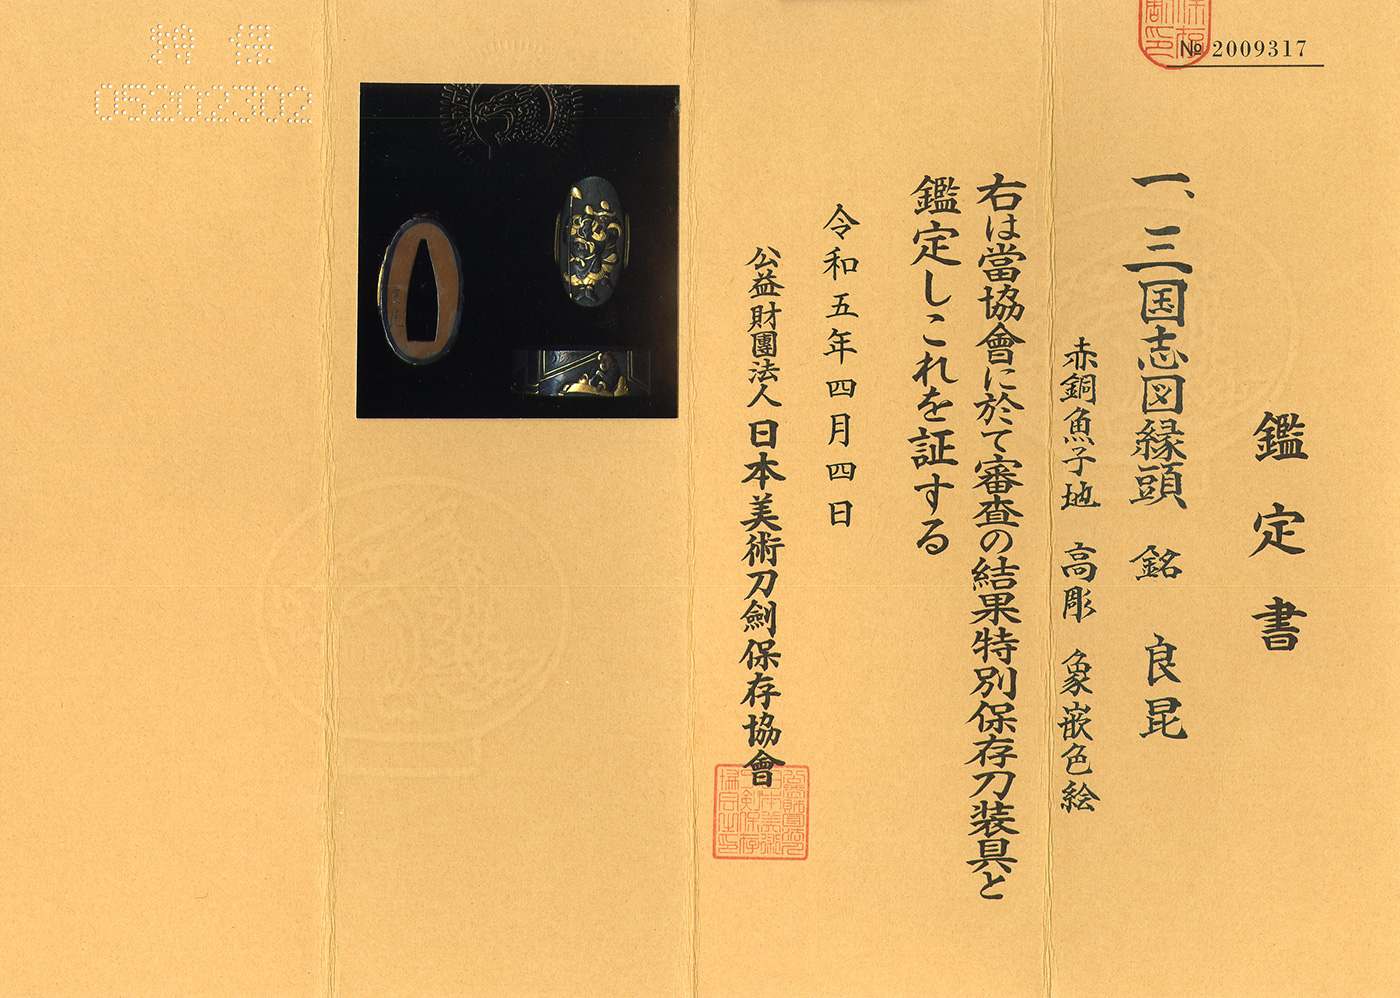 № 2009317
鑑定書
一、三国志図縁頭 銘 良昆
赤銅魚子地 高彫 象嵌色絵
右は當協會に於て審査の結果特別保存刀装具と
鑑定しこれを証する
令和五年四月四日
公益財團法人 日本美術刀劍保存協會
05202302